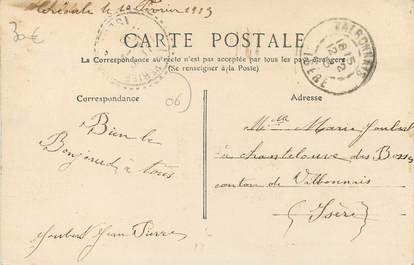 le 10 Février 1913
30€
CARTE POSTALE
La Correspondance au recto n'est pas acceptée par tous les pays étrangers
(Se renseigner à la Poste)
Correspondance
Adresse
06
Bien le
Bonjour à tous
Joubert Jean Pierre
Mlle Marie Joubert
à Chantelouve des
canton de Valbonnais
(Isère)
VALBONNAIS
ISÈRE